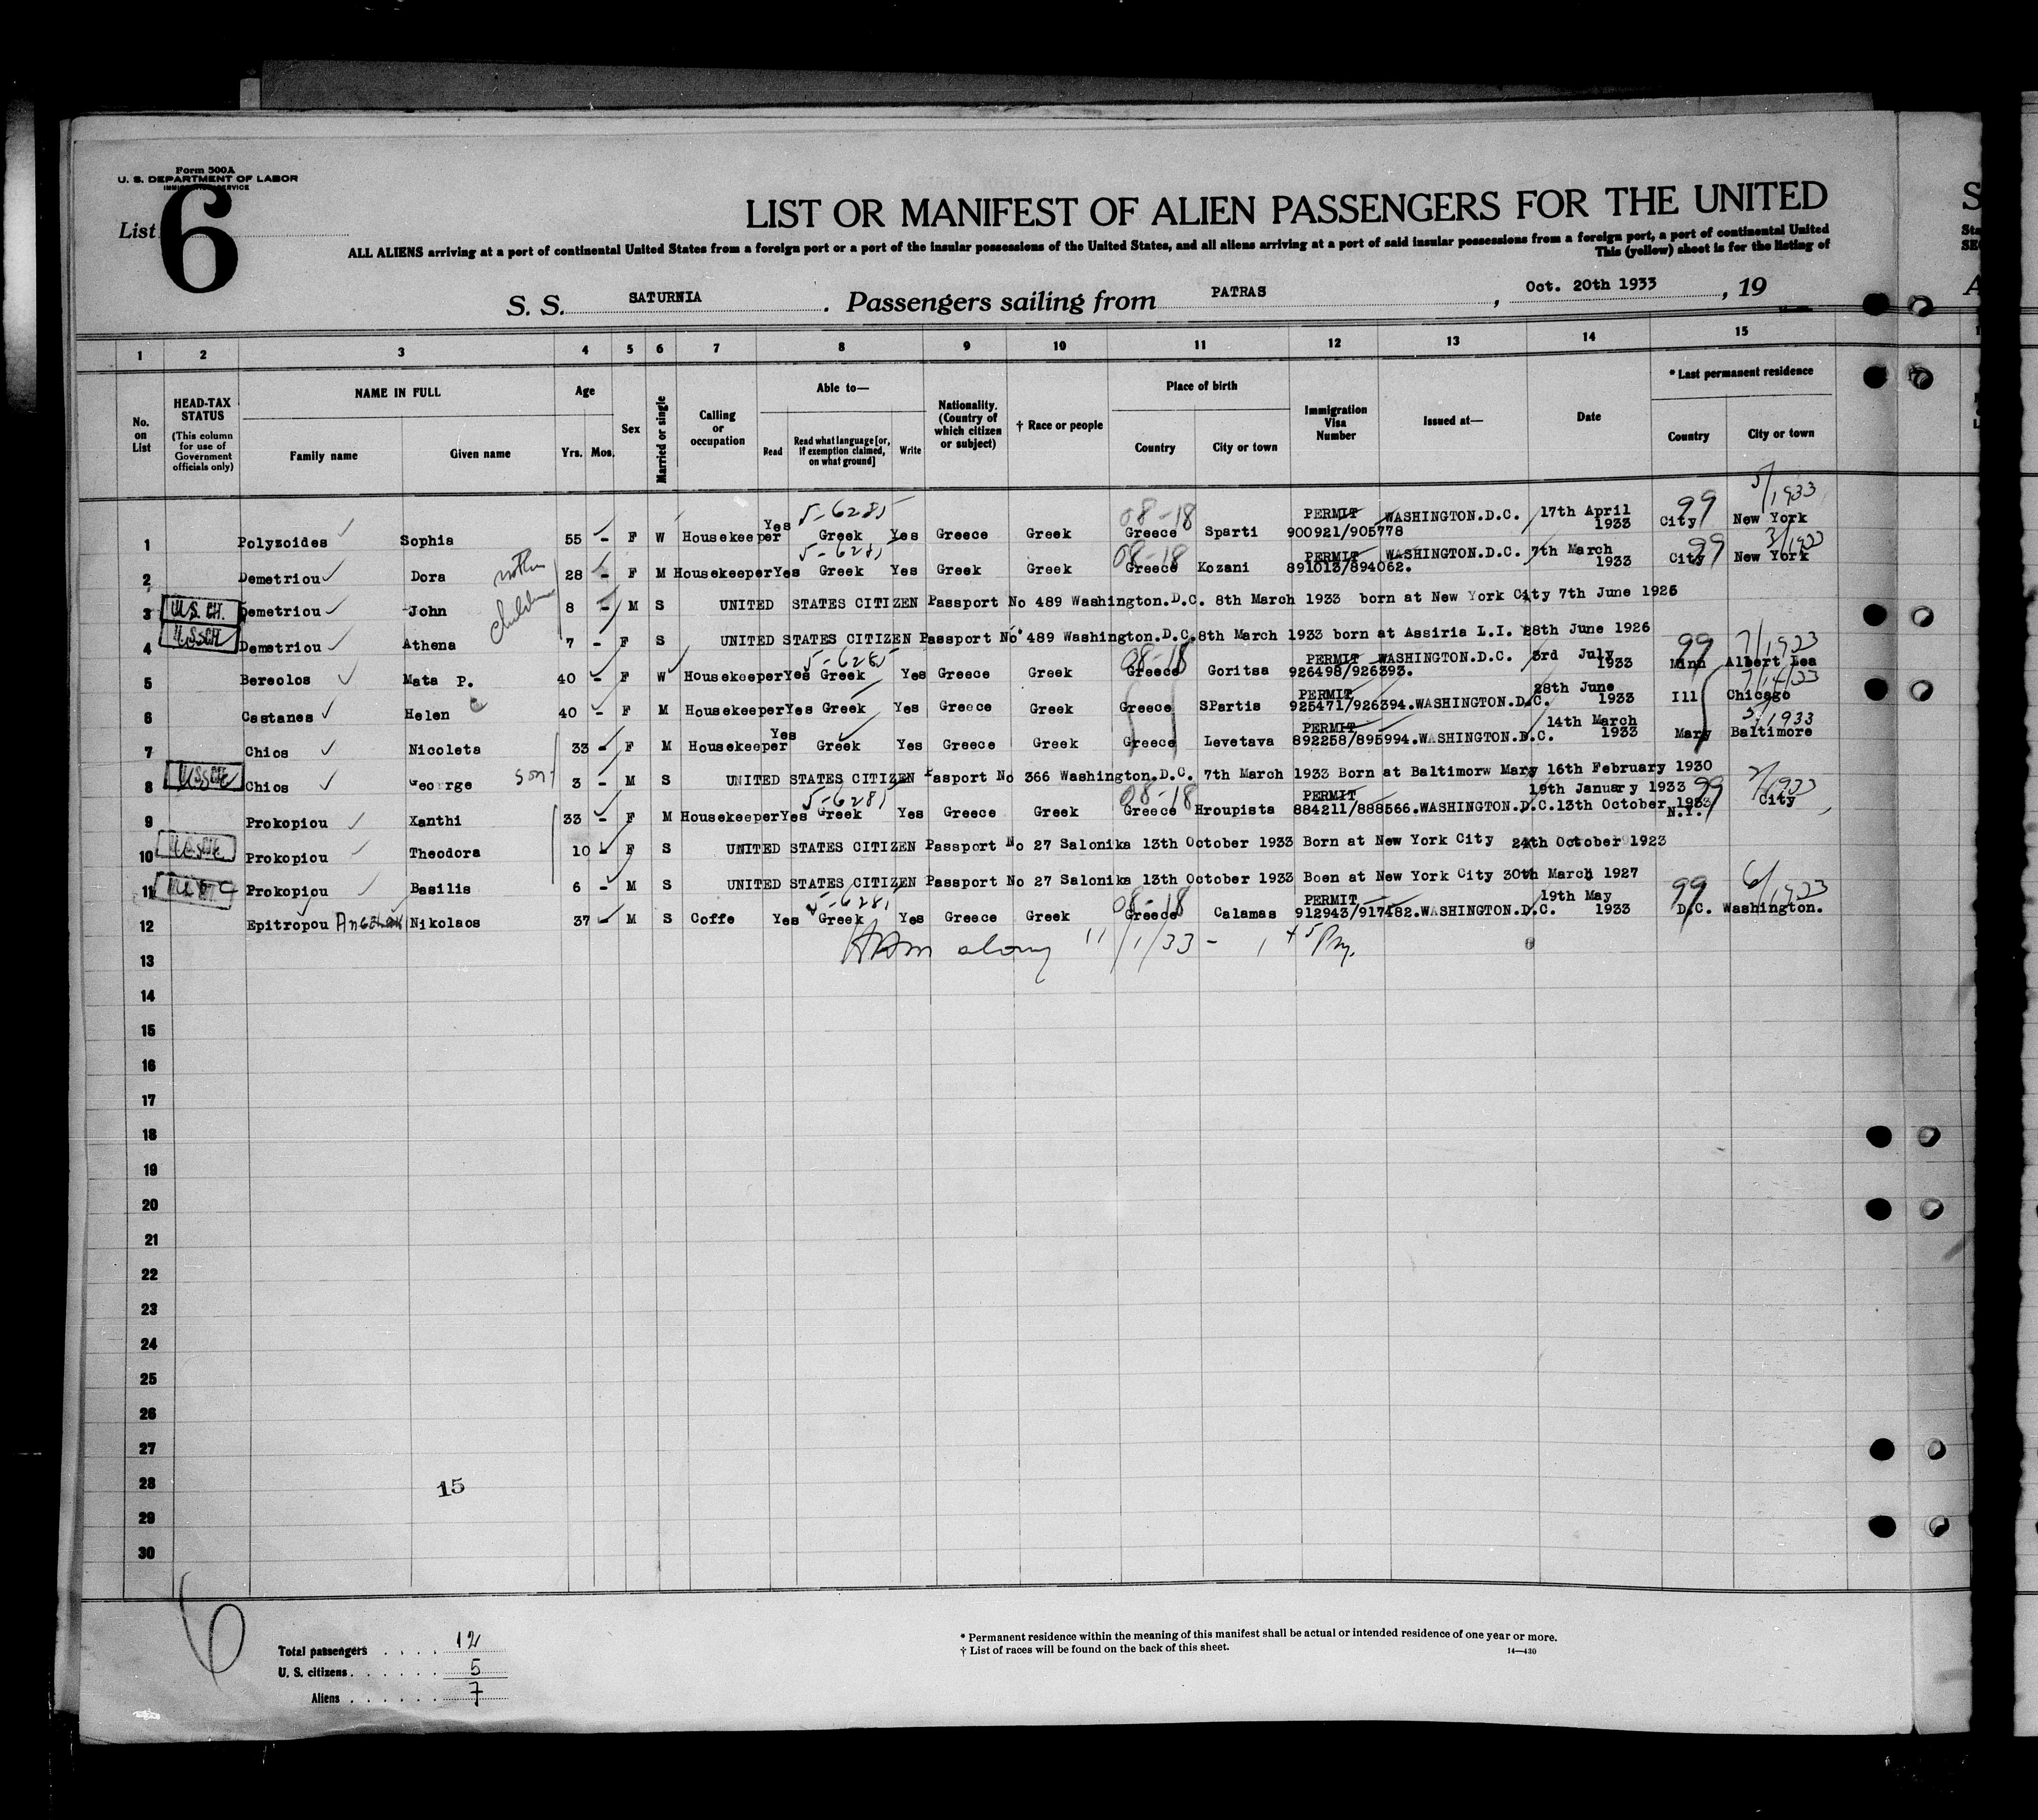 Form 500A
U. S. DEPARTMENT OF LABOR
List 6
LIST OR MANIFEST OF ALIEN PASSENGERS FOR THE UNITED
ALL ALIENS arriving at a port of continental United States from a foreign port or a port of the insular possessions of the United States, and all aliens arriving at a port of said insular possessions from a foreign port, a port of continental United
This (yellow) sheet is for the listing of
S. S. SATURNIA . Passengers sailing from PATRAS , Oct. 20th 1933 , 19
1 2 3 4 5 6 7 8 9 10 11 12 13 14 15
No. on List
HEAD-TAX STATUS (This column for use of Government officials only)
NAME IN FULL
Family name Given name
Age
Yrs. Mos.
Sex
Married or single
Calling or occupation
Able to—
Read Read what language [or, if exemption claimed, on what ground] Write
Nationality. (Country of which citizen or subject)
† Race or people
Place of birth
Country City or town
Immigration Visa Number
Issued at—
Date
* Last permanent residence
Country City or town
1 Polyzoides Sophia 55 - F W Housekeeper Yes Greek Yes Greece Greek 08-18 Greece Sparti PERMIT 900921/905778 WASHINGTON.D.C. 17th April 1933 99 City New York 5/1933
2 Demetriou Dora mother 28 - F M Housekeeper Yes Greek Yes Greek Greek 08-18 Greece Kozani PERMIT 891013/894062. WASHINGTON.D.C. 7th March 1933 99 City New York 3/1933
3 Demetriou John children 8 - M S UNITED STATES CITIZEN Passport No 489 Washington.D.C. 8th March 1933 born at New York City 7th June 1925
4 Demetriou Athena 7 - F S UNITED STATES CITIZEN Passport No 489 Washington.D.C. 8th March 1933 born at Assiria L.I. 28th June 1926
5 Bereolos Mata P. 40 - F W Housekeeper Yes Greek Yes Greece Greek 08-18 Greece Goritsa PERMIT 926498/926393. WASHINGTON.D.C. 3rd July 1933 99 Minn Albert Lea 7/1933
6 Castanes Helen 40 - F M Housekeeper Yes Greek Yes Greece Greek Greece SPartis PERMIT 925471/926394. WASHINGTON.D.C. 28th June 1933 Ill Chicago
7 Chios Nicoleta 33 - F M Housekeeper Yes Greek Yes Greece Greek Greece Levetava PERMIT 892258/895994. WASHINGTON.D.C. 14th March 1933 Mary Baltimore 3/1933
8 Chios George son 3 - M S UNITED STATES CITIZEN Pasport No 366 Washington.D.C. 7th March 1933 Born at Baltimorw Mary 16th February 1930
9 Prokopiou Xanthi 33 - F M Housekeeper Yes Greek Yes Greece Greek 08-18 Greece Hroupista PERMIT 884211/888566. WASHINGTON.D.C. 19th January 1933 13th October 1933 99 N.Y. City
10 Prokopiou Theodora 10 - F S UNITED STATES CITIZEN Passport No 27 Salonika 13th October 1933 Born at New York City 24th October 1923
11 Prokopiou Basilis 6 - M S UNITED STATES CITIZEN Passport No 27 Salonika 13th October 1933 Boen at New York City 30th March 1927
12 Epitropou Nikolaos 37 - M S Coffe Yes Greek Yes Greece Greek 08-18 Greece Calamas PERMIT 912943/917482. WASHINGTON.D.C. 19th May 1933 99 D.C. Washington. 6/1933
13 11/1/33 -
14
15
16
17
18
19
20
21
22
23
24
25
26
27
28 15
29
30
6
Total passengers . . . . 12
U. S. citizens . . . . . . 5
Aliens . . . . . . 7
* Permanent residence within the meaning of this manifest shall be actual or intended residence of one year or more.
† List of races will be found on the back of this sheet.
14—430